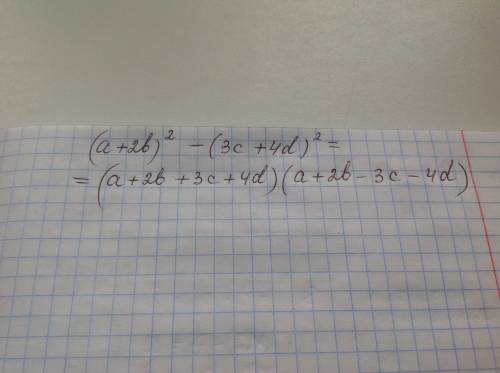 (a+2b)² -(3c+4d)²=
=(a+2b+3c+4d)(a+2b-3c-4d)